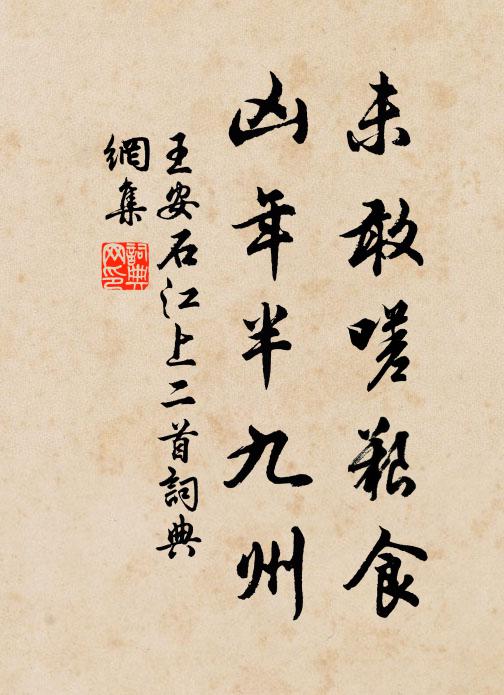 未敢嗟艱食
凶年半九州
王安石江上二首詞典
網集
詞典网印